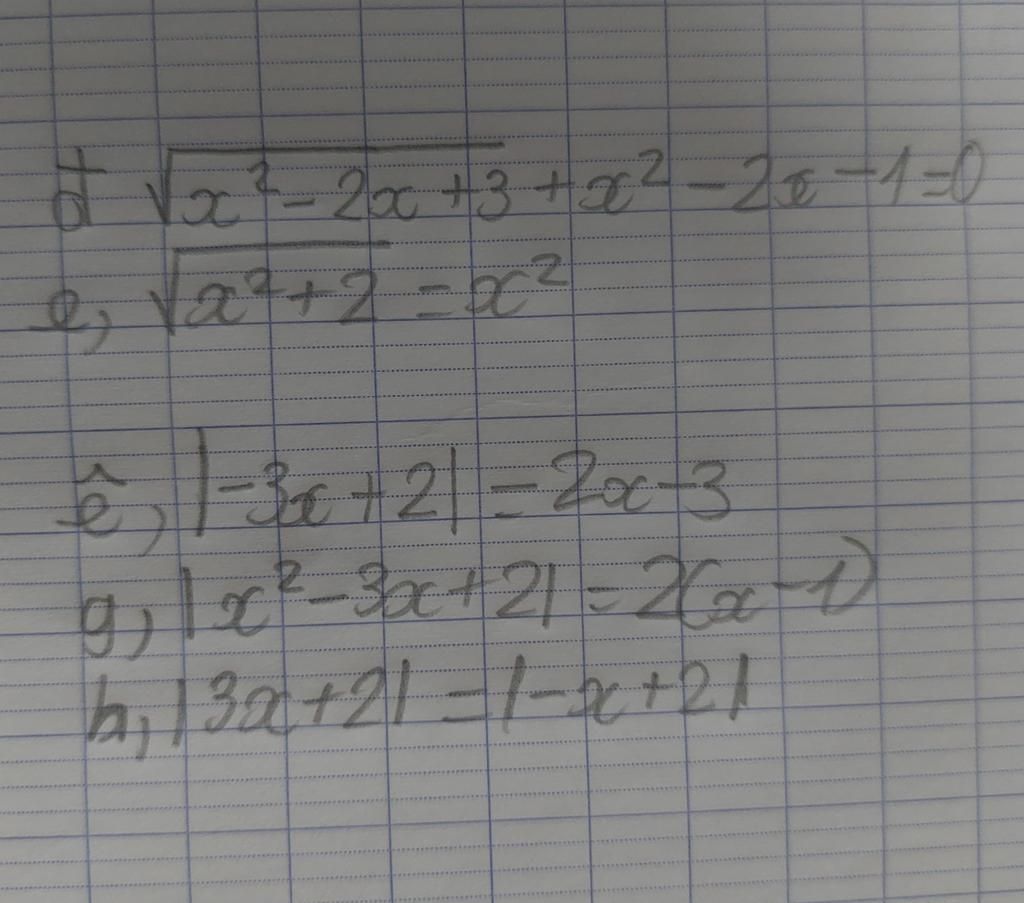 đ √(x² - 2x + 3) + x² - 2x - 1 = 0
e, √(x² + 2) = x²
ê, |-3x + 2| = 2x - 3
g, |x² - 3x + 2| = 2(x - 1)
h, |3x + 2| = |-x + 2|